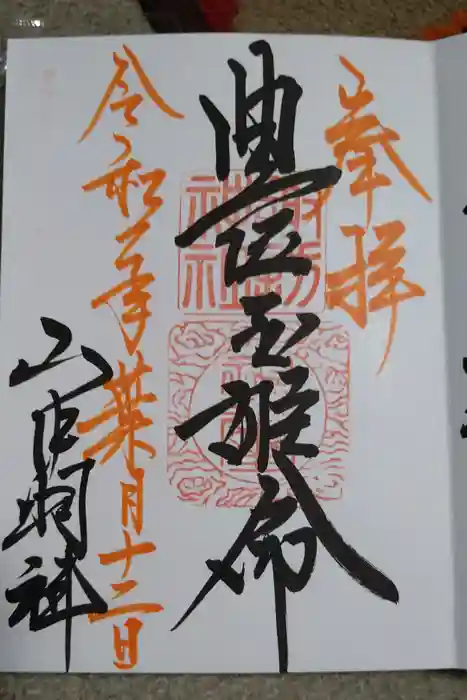 奉拝
豊玉姫命
諏訪
神社
令和年葉月十二日
山明神